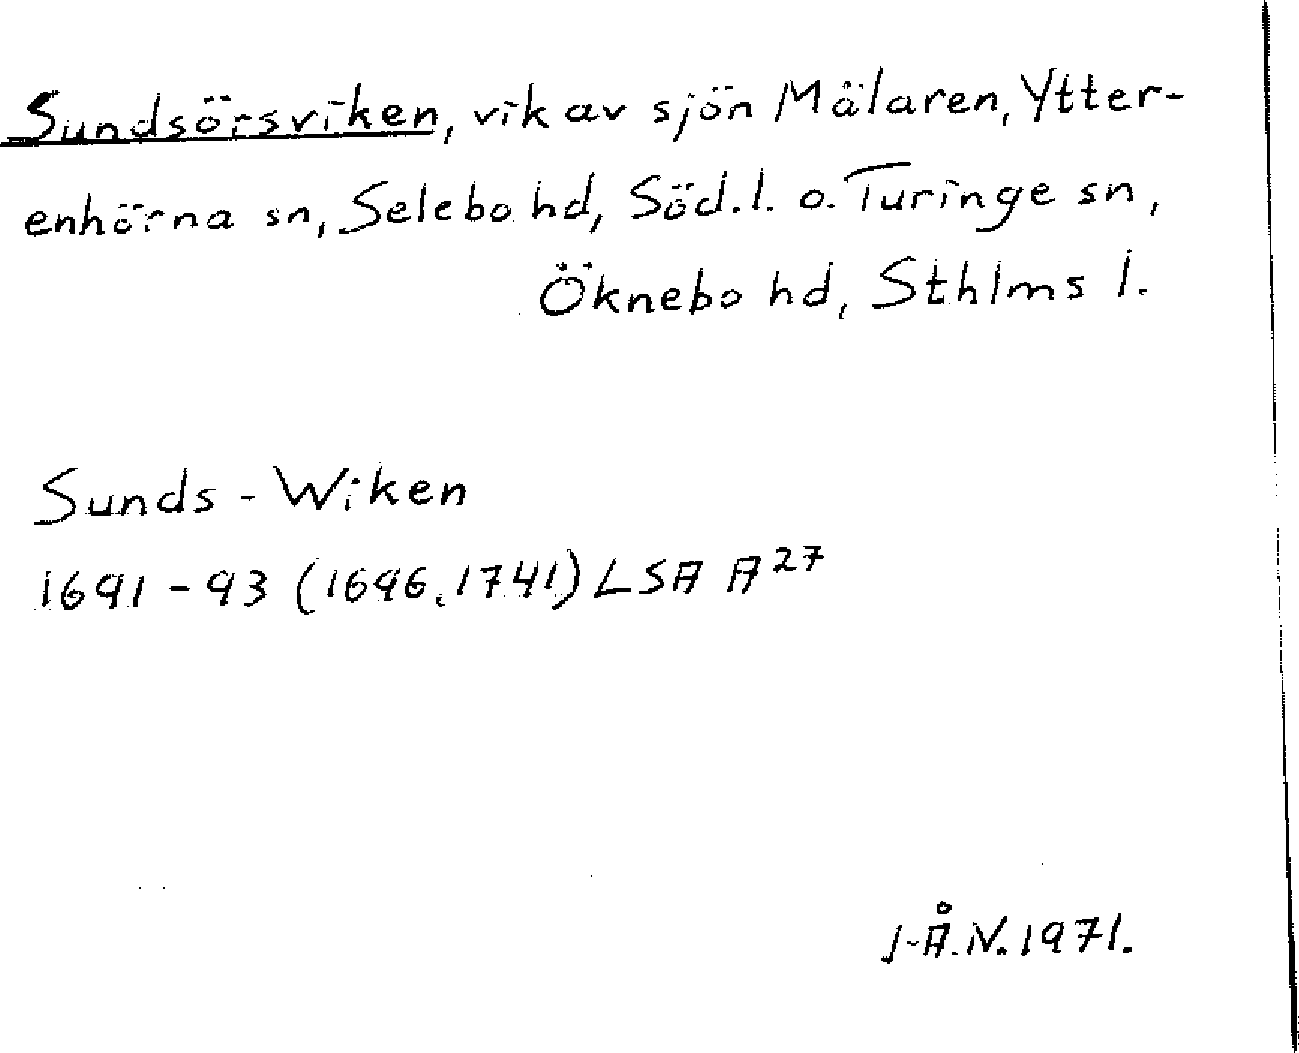 Sundsörsviken, vik av sjön Mälaren, Ytter-
enhörna sn, Selebo hd, Söd.l. o. Turinge sn,
Öknebo hd, Sthlms l.
Sunds-Wiken
1691-93 (1696, 1741) LSA A27
J-Å.N. 1971.